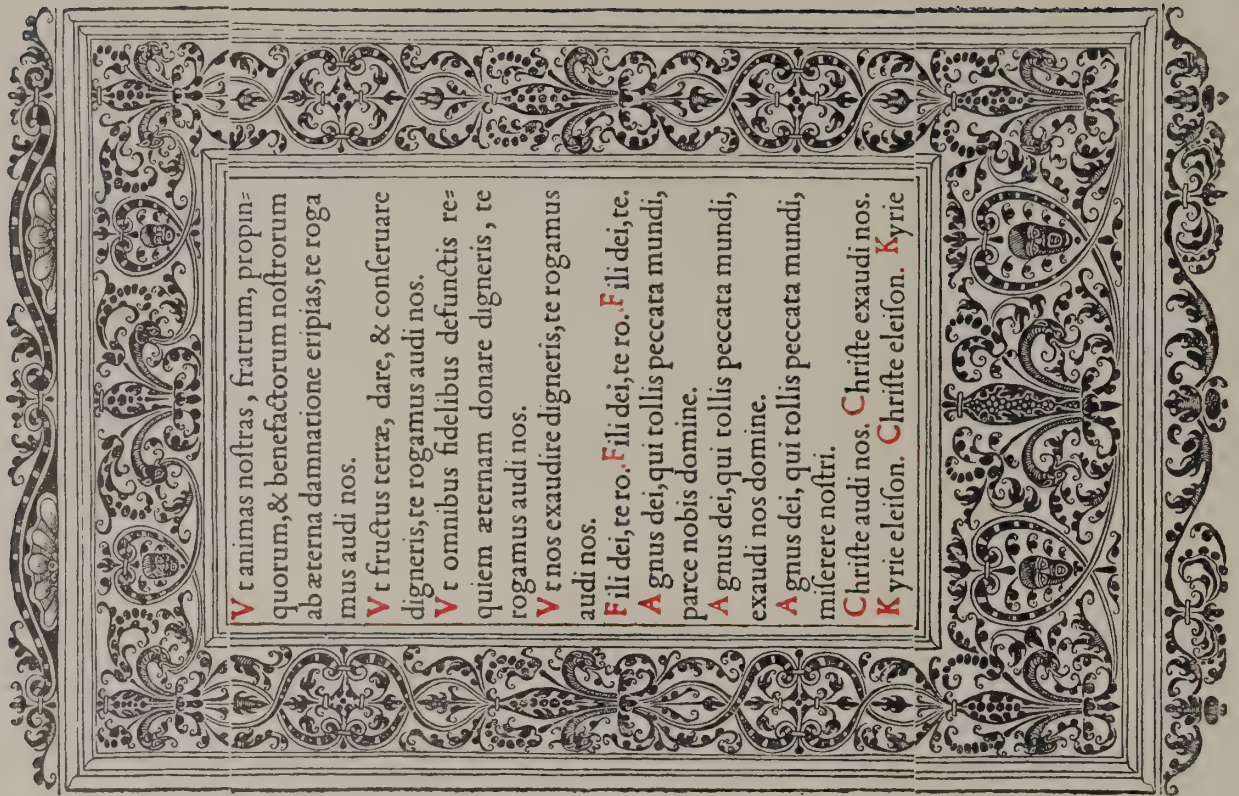 V t animas noſtras, fratrum, propin=
quorum, & benefactorum noſtrorum
ab æterna damnatione eripias, te roga
mus audi nos.
V t fructus terræ, dare, & conſeruare
digneris, te rogamus audi nos.
V t omnibus fidelibus defunctis re=
quiem æternam donare digneris, te
rogamus audi nos.
V t nos exaudire digneris, te rogamus
audi nos.
F ili dei, te ro. F ili dei, te ro. F ili dei, te.
A gnus dei, qui tollis peccata mundi,
parce nobis domine.
A gnus dei, qui tollis peccata mundi,
exaudi nos domine.
A gnus dei, qui tollis peccata mundi,
miſerere noſtri.
C hriſte audi nos. C hriſte exaudi nos.
K yrie eleiſon. C hriſte eleiſon. K yrie